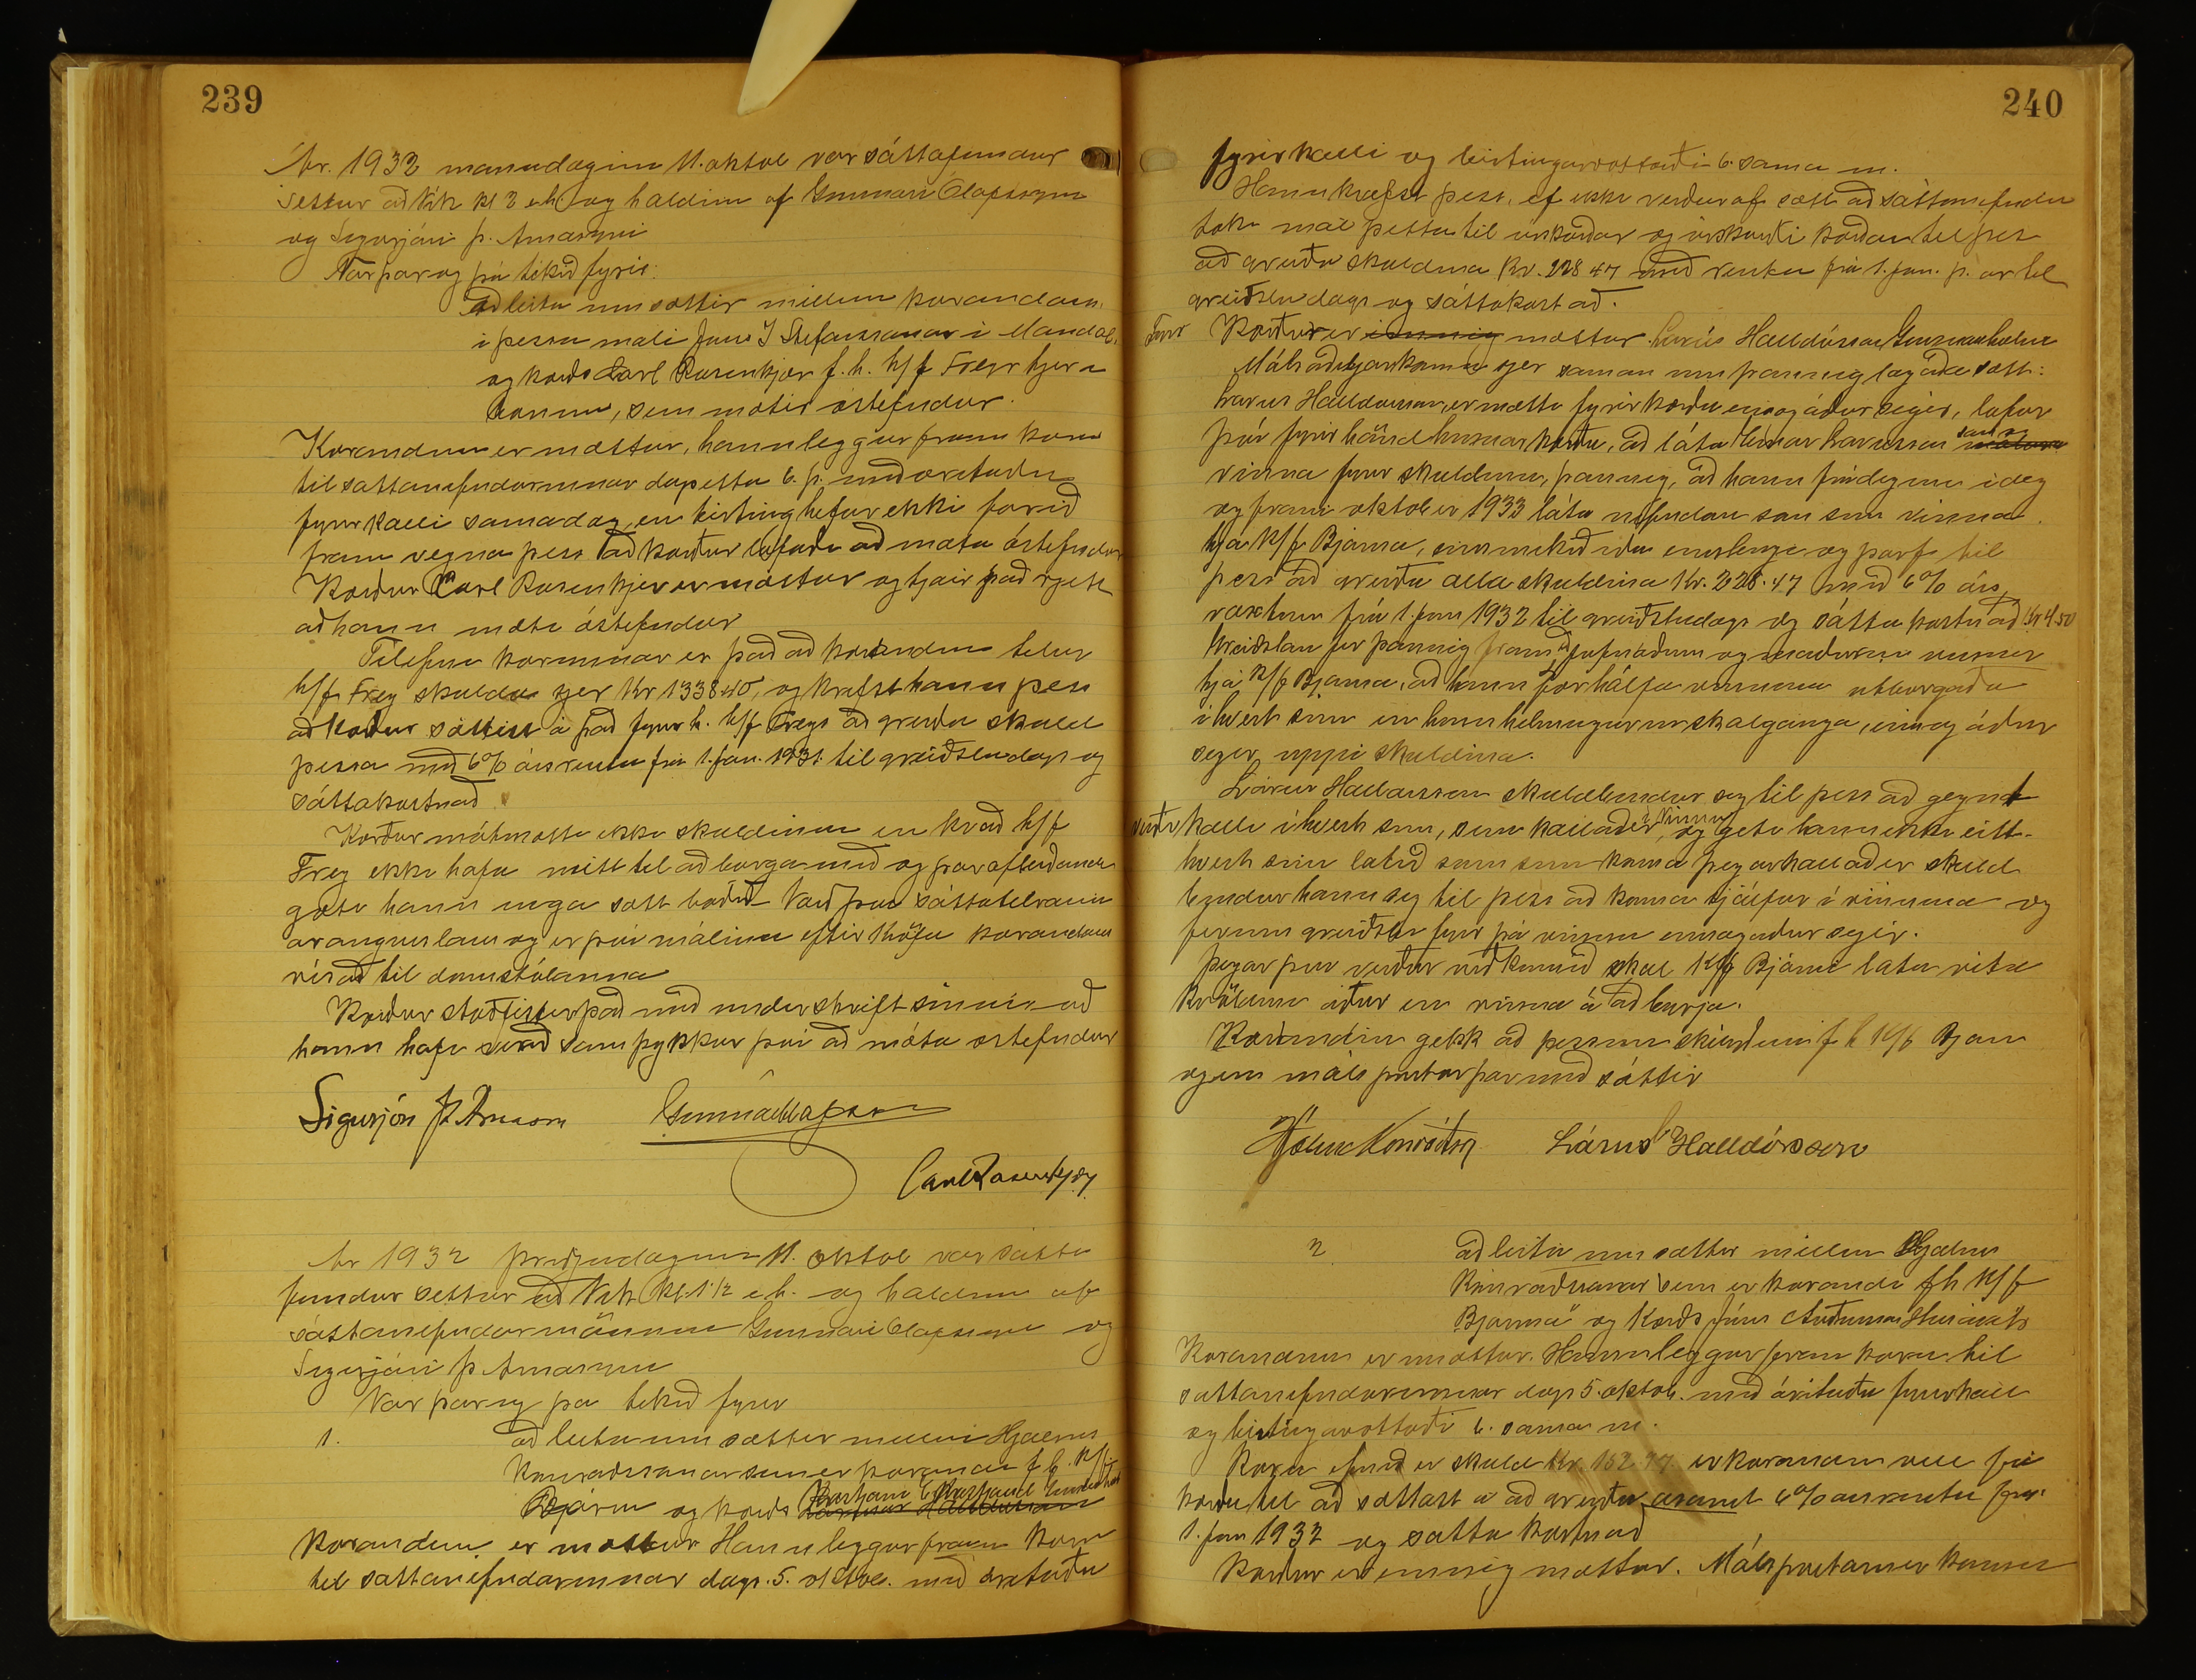 239
Ár 1932 mánudaginn 11. októb var sáttafundur
settur að Vík kl 3 eh og haldinn af Gunnari Ólafssyni
og Sigurjóni Þ. Árnasyni
Var þar og þá tekið fyrir:
að leita um sættir millum kærandans
í þessu máli Jóns J Stefánssonar í Mandal
og kærðs Carl Rosenkjær f.h. h/f Freyr hjer í
bænum, sem mætir óstefndur.
Kærandinn er mættur, hann leggur fram kæru
til sáttanefndarinnar dags þetta 6. þ. með áritaðu
fyrirkalli sama dag, en birting hefur ekki farið
fram vegna þess að kærður lofaði að mæta óstefndur
Kærður Carl Rosenkjær er mættur og tjáir það rjett
að hann mæti óstefndur
Tilefni kærunnar er það að kærandinn telur
h/f Frey skulda sjer Kr 1338.40, og krefst hann þess
að kærður sættist á það fyrir h. h/f Freys að greiða skuld
þessa með 6% ársrentu frá 1. jan. 1931 til greiðsludags og
sáttakostnað
Kærður mótmælti ekki skuldinni en kvað h/f
Frey ekki hafa neitt til að borga með og þar afleiðandi
gæti hann enga sætt boðið. Varð því sáttatilraun
árangurslaus og er því málinu eftir kröfu kærandans
vísað til dómstólanna
Kærður staðfestir það með undirskrift sinni að
hann hafi verið samþykkur því að mæta óstefndur
Sigurjón Þ Árnason Gunnar Ólafsson
Carl Rosenkjær
Ár 1932 þriðjudaginn 11. októb var sátta
fundur settur að Vík kl. 1 1/2 e.h. og haldinn af
sáttanefndarmönnum Gunnari Ólafssyni og
Sigurjóni Þ Árnasyni
Var þar og þá tekið fyrir
1. að leita um sættir millum Hjálmars
Konráðssonar sem er kærandi f.h. K/f
Bjarma og kærðs Lárusar Halldórssonar
Kærandinn er mættur Hann leggur fram kæru
til sáttanefndarinnar dags. 5. októb. með áritaðu
240
fyrirkalli og birtingarvottorði 6. sama m.
Hann krefst þess, ef ekki verður af sætt að sáttanefndin
taki mál þetta til úrskurðar og úrskurði kærðan til þess
að greiða skuldina Kr. 228 47 með rentu frá 1. jan. þ. ár til
greiðsludags og sáttakostnað.
Fyrir Kærður er einnig mættur Lárus Halldórsson
Málsaðiljar koma sjer saman um þannig lagaða sætt:
Lárus Halldórsson, er mætti fyrir kærðu eins og áður segir, lofar
því fyrir hönd hennar kærðu, að láta Einar Lárusson
vinna fyrir skuldinni, þannig, að hann frá deginum í dag
og fram í október 1933 láta nefndan son sinn vinna
hjá K/f Bjarma, eins mikið og eins lengi og þarf til
þess að greiða alla skuldina Kr. 228.47 með 6% árs
vöxtum frá 1. jan 1932 til greiðsludags og sátta kostnað Kr 4.50
Greiðslan fer þannig fram að jafnóðum og maðurinn vinnur
hjá K/f Bjarma, að hann fær hálfa vinnuna útborgaða
í hvert sinn en hinn helmingurinn skal ganga, eins og áður
segir, uppí skuldina.
Lárus Halldórsson skuldbindur sig til þess að gegna
kalli í hvert sinn, sem kallað er í vinnu, og geti hann ekki eitt-
hvert sinn látið son sinn koma þegar kallað er skuld
bindur hann sig til þess að koma sjálfur í vinnuna og
fer um greiðslu fyrir þá vinnu eins og áður segir.
Þegar því verður við komið skal K/f Bjarmi láta vita
kvöldinu áður en vinna á að byrja.
Kærandinn gekk að þessum skilyrðum f h K/f Bjarma
og eru máls partar þar með sáttir
Hjálmar Konráðsson Lárus Halldórsson
2 að leita um sættir millum Hjálmars
Konráðssonar sem er kærandi fh K/f
Bjarma og kærðs Jóns
Kærandinn er mættur. Hann leggur fram kæru til
sáttanefndarinnar dags 5. októb. með árituðu fyrirkalli
og birtingarvottorði 6. sama m.
Kæru efnið er skuld Kr. 162.77 er kærandinn vill fá
kærðu til að sættast á að greiða ásamt 6% ársrentu frá
1. jan 1932 og sátta kostnað
Kærður er einnig mættur. Málspartarnir komu